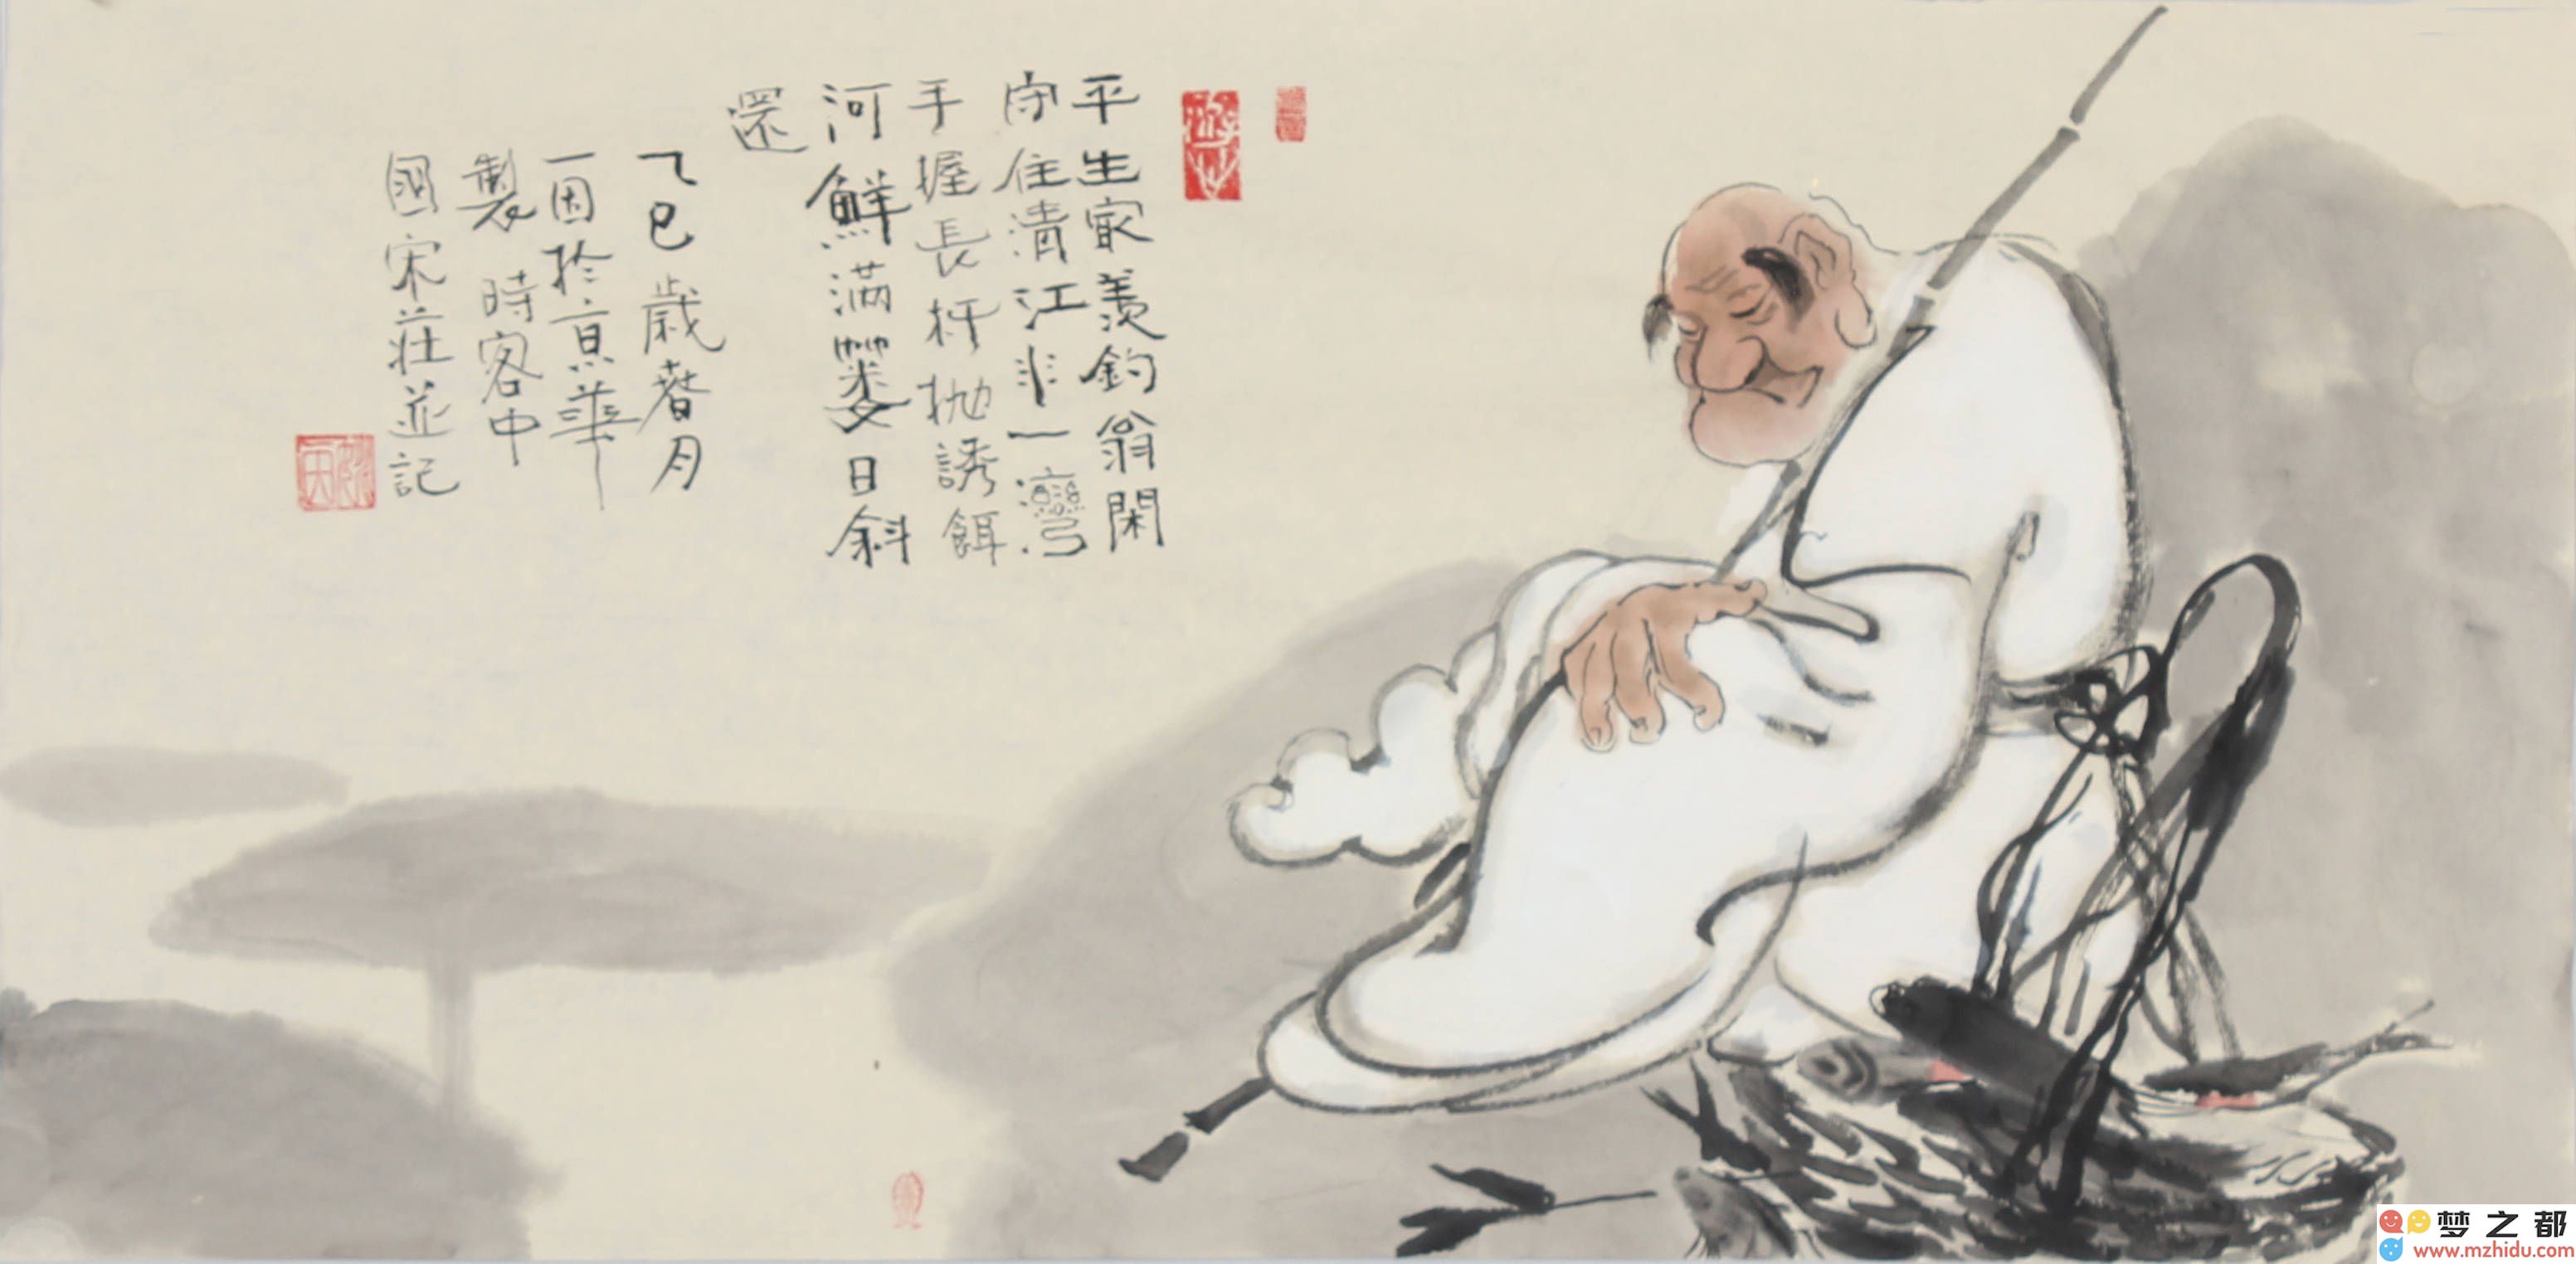 平生最羡钓翁閑
守住清江非一灣
手握長杆抛誘餌
河鮮满簍日斜
還
乙巳歲春月
一因於京華
製 時客中
國宋莊並記
梦之都
www.mzhidu.com